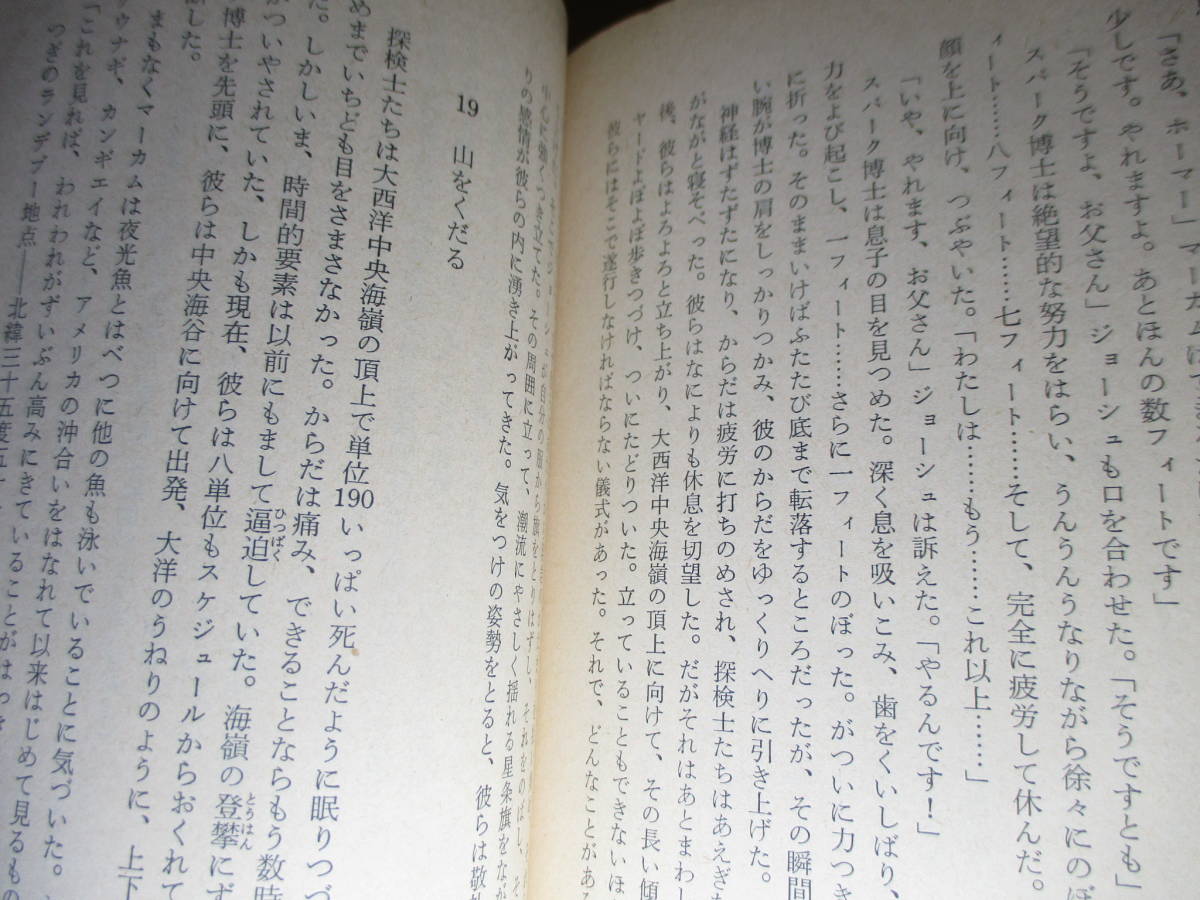 「さあ、ホーマー」マーカムは
少しです。やれますよ。あとほんの数フィートです」
「そうですよ、お父さん」ジョーシュも口を合わせた。「そうですとも」
スパーク博士は絶望的な努力をはらい、うんうんうなりながら徐々にのぼ
ィート……八フィート……七フィート……そして、完全に疲労して休んだ。
顔を上に向け、つぶやいた。「わたしは……もう……これ以上……」
「いや、やれます、お父さん」ジョーシュは訴えた。「やるんです！」
スパーク博士は息子の目を見つめた。深く息を吸いこみ、歯をくいしばり、
力をよび起こし、一フィート……さらに一フィートのぼった。がついに力つき
に折った。そのままいけばふたたび底まで転落するところだったが、その瞬間
い腕が博士の肩をしっかりつかみ、彼のからだをゆっくりへりに引き上げた。
神経はずたずたになり、からだは疲労に打ちのめされ、探検士たちはあえぎな
がながと寝そべった。彼らはなによりも休息を切望した。だがそれはあとまわし
後、彼らはよろよろと立ち上がり、大西洋中央海嶺の頂上に向けて、その長い傾
ヤードよぼよぼ歩きつづけ、ついにたどりついた。立っていることもできないほ
彼らにはそこで遂行しなければならない儀式があった。それで、どんなことがあ
が自分の服から旗をとりはずし、それをのばし、そ
中心に強くつき立てた。その周囲に立って、潮流にやさしく揺れる星条旗をなが
りの感情が彼らの内に湧き上がってきた。気をつけの姿勢をとると、彼らは敬
19 山をくだる
探検士たちは大西洋中央海嶺の頂上で単位190いっぱい死んだように眠りつづ
めまでいちども目をさまさなかった。からだは痛み、できることならもう数時
た。しかしいま、時間的要素は以前にもまして逼迫していた。海嶺の登攀にず
がついやされていた、しかも現在、彼らは八単位もスケジュールからおくれて
博士を先頭に、彼らは中央海谷に向けて出発、大洋のうねりのように、上下
した。
まもなくマーカムは夜光魚とはべつに他の魚も泳いでいることに気づいた。
ウナギ、カンギエイなど、アメリカの沖合いをはなれて以来はじめて見るもの
「これを見れば、われわれがずいぶん高みにきていることがはっき
つぎのランデブー地点――北緯三十五度五